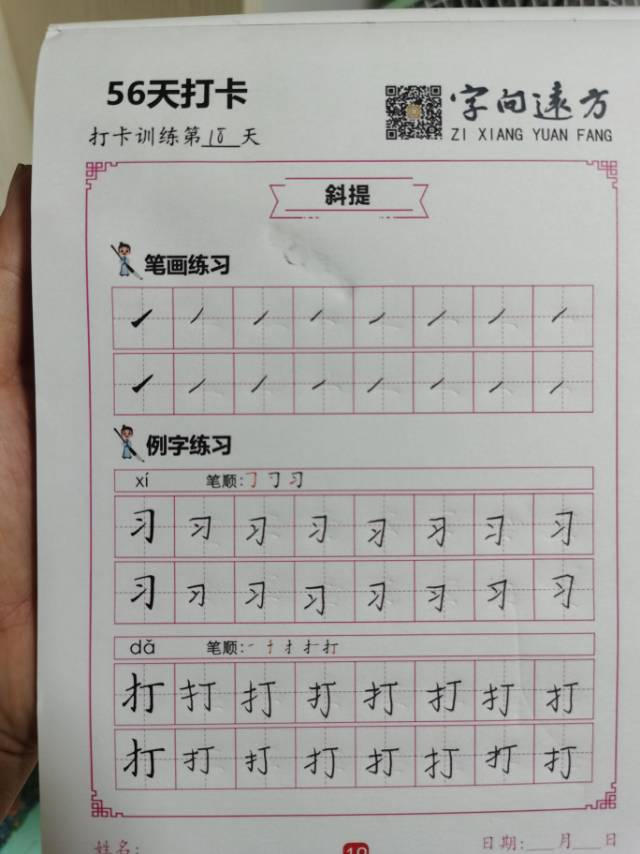 56天打卡
字向远方
ZI XIANG YUAN FANG
打卡训练第18天
斜提
笔画练习
例字练习
xí 笔顺:
习 习 习 习 习 习 习 习
习 习 习 习 习 习 习 习
dǎ 笔顺:
打 打 打 打 打 打 打 打
打 打 打 打 打 打 打 打
姓名: 日期:___月___日